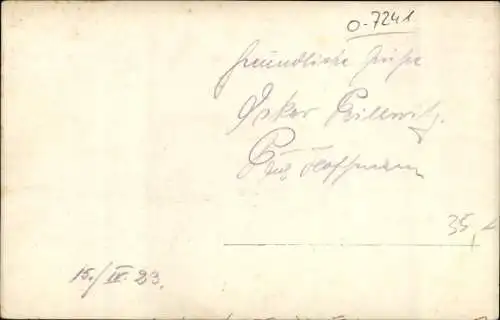 O-7241
freundliche Grüße
Oskar Prillwitz.
Hoffmann
35,-
15./IV. 23.